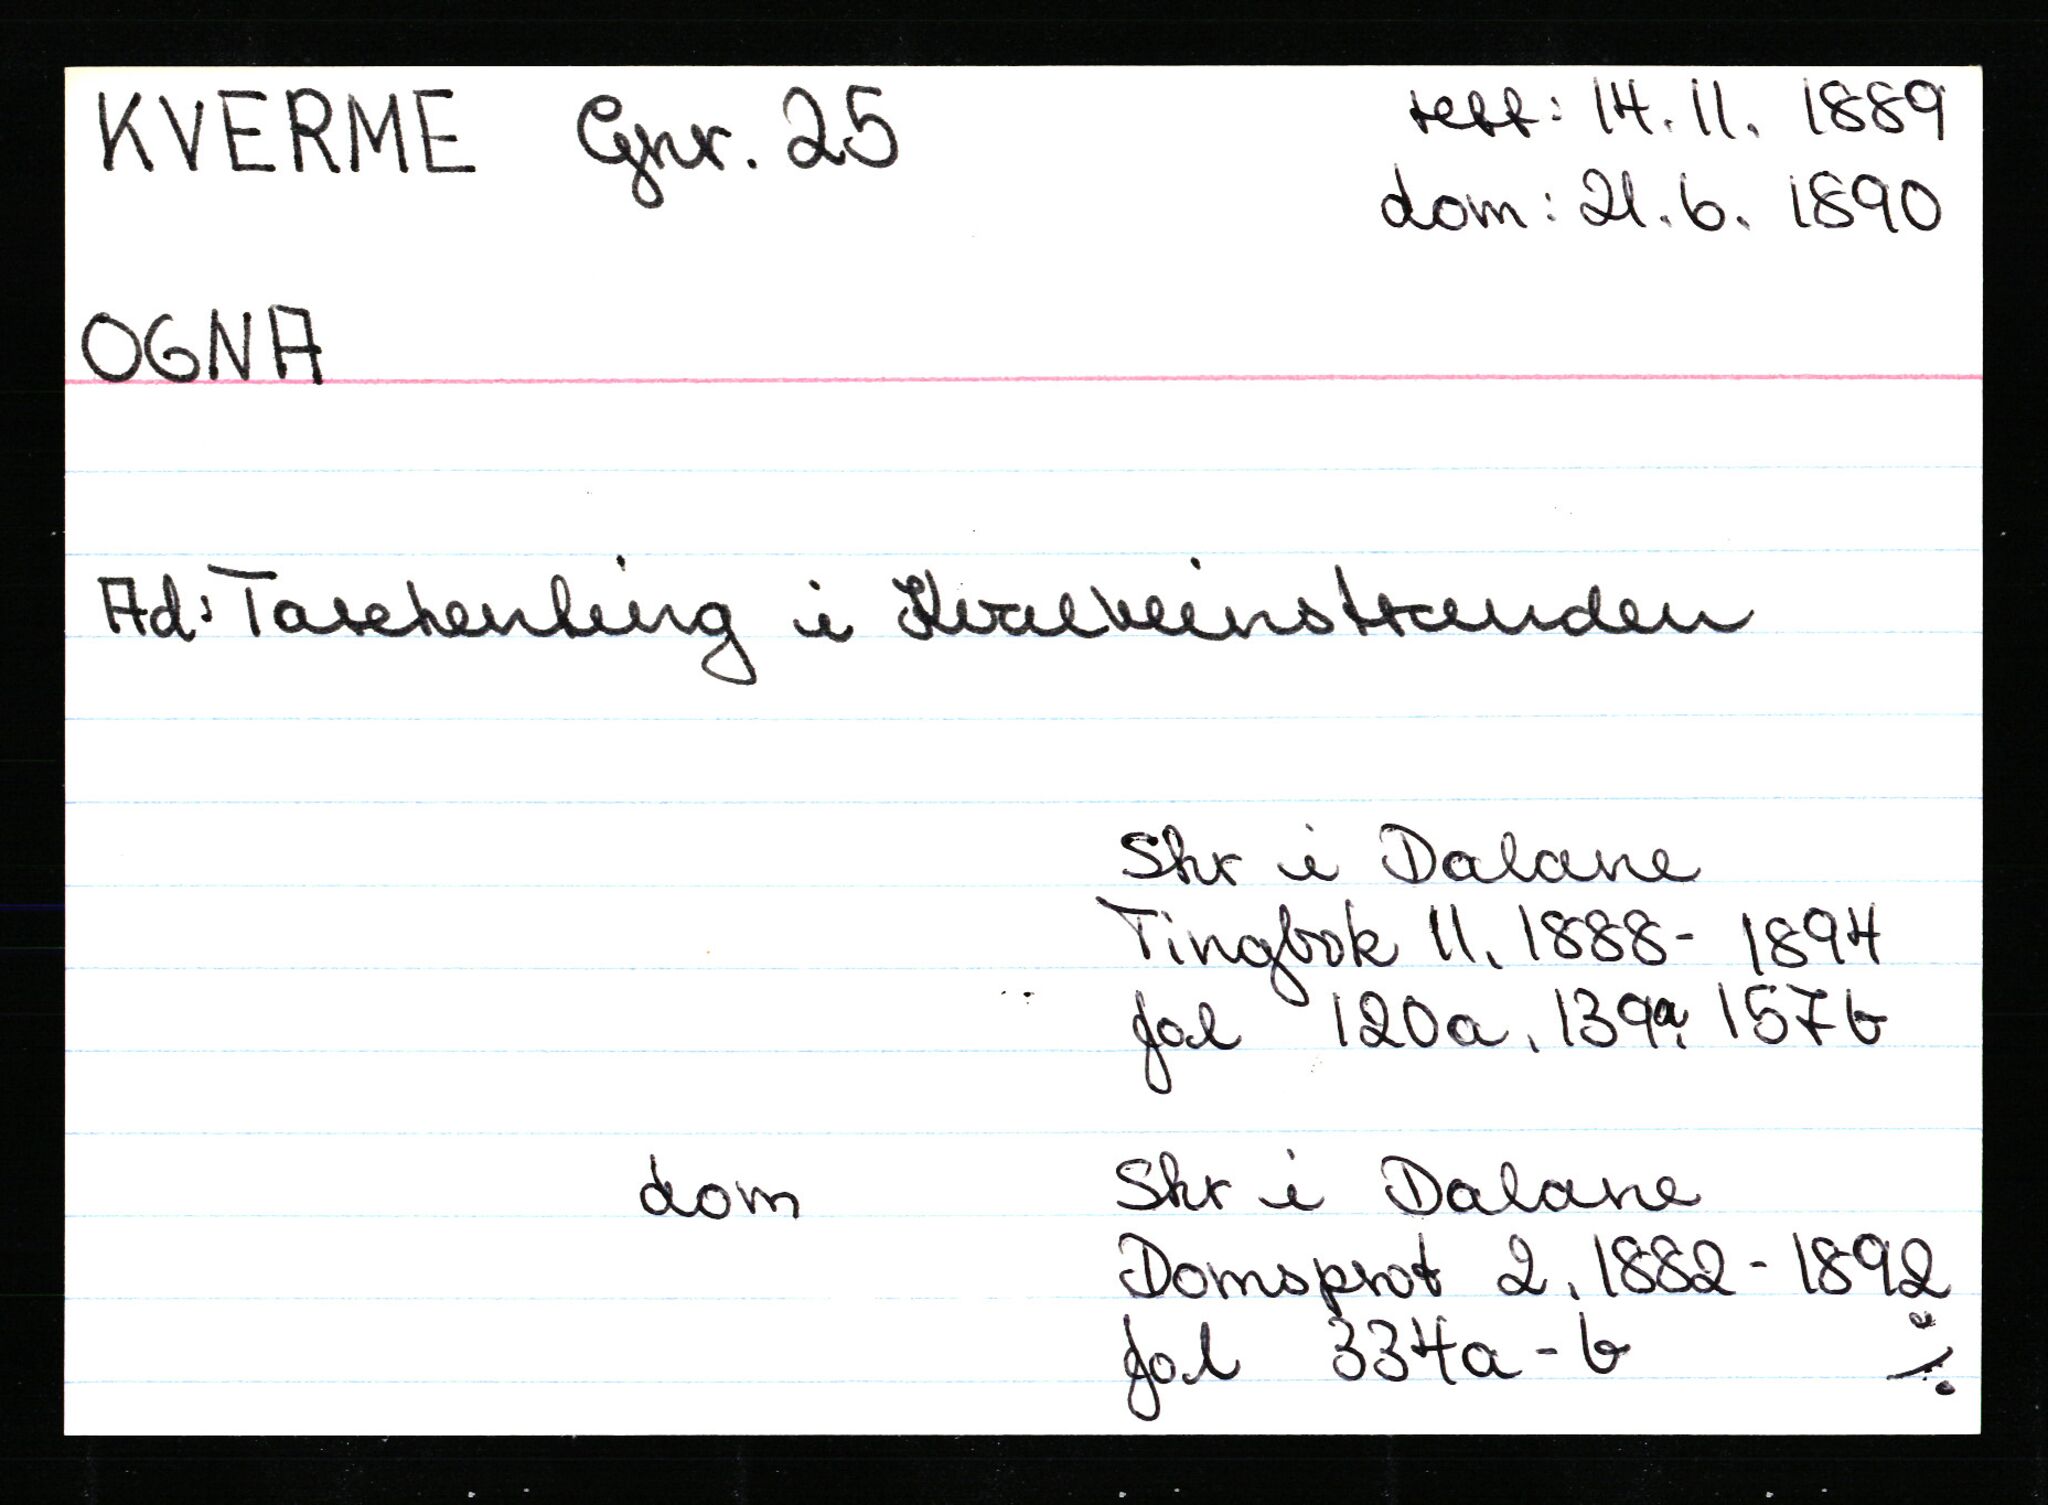 KVERME Gnr. 25
rett: 14.11. 1889
dom: 21.6. 1890
OGNA
Ad: i Kvalbeinstranden
Skr i Dalane
Tingbok 11, 1888-1894
fol 120a, 139a, 157b
dom Skr i Dalane
Domsprot 2, 1882-1892
fol 334a-b ./.